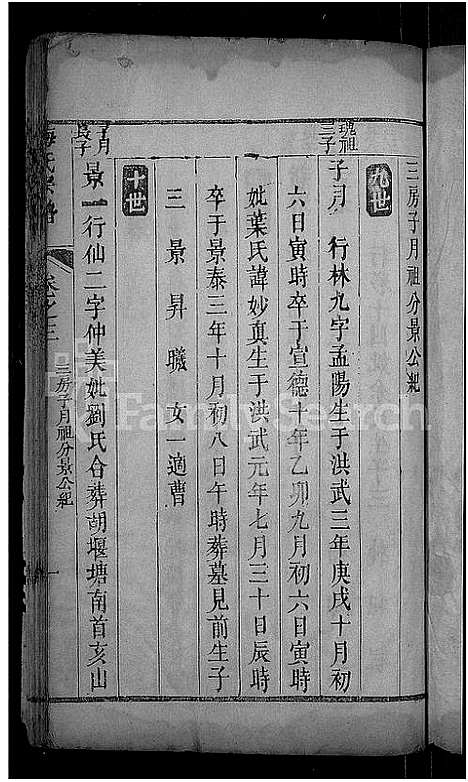 三房子月祖分景公紀
九世
瑰祖三子
子月 行林九字孟陽生于洪武三年庚戌十月初
六日寅時卒于宣德十年乙卯九月初六日寅時
妣葉氏諱妙真生于洪武元年七月三十日辰時
卒于景泰三年十月初八日午時葬墓見前生子
三 景 昇 曦 女一適曹
十世
子月長子
景一行仙二字仲美妣劉氏合葬胡堰塘南首亥山
氏宗譜
卷之三
三房子月祖分景公紀
一
FamilySearch